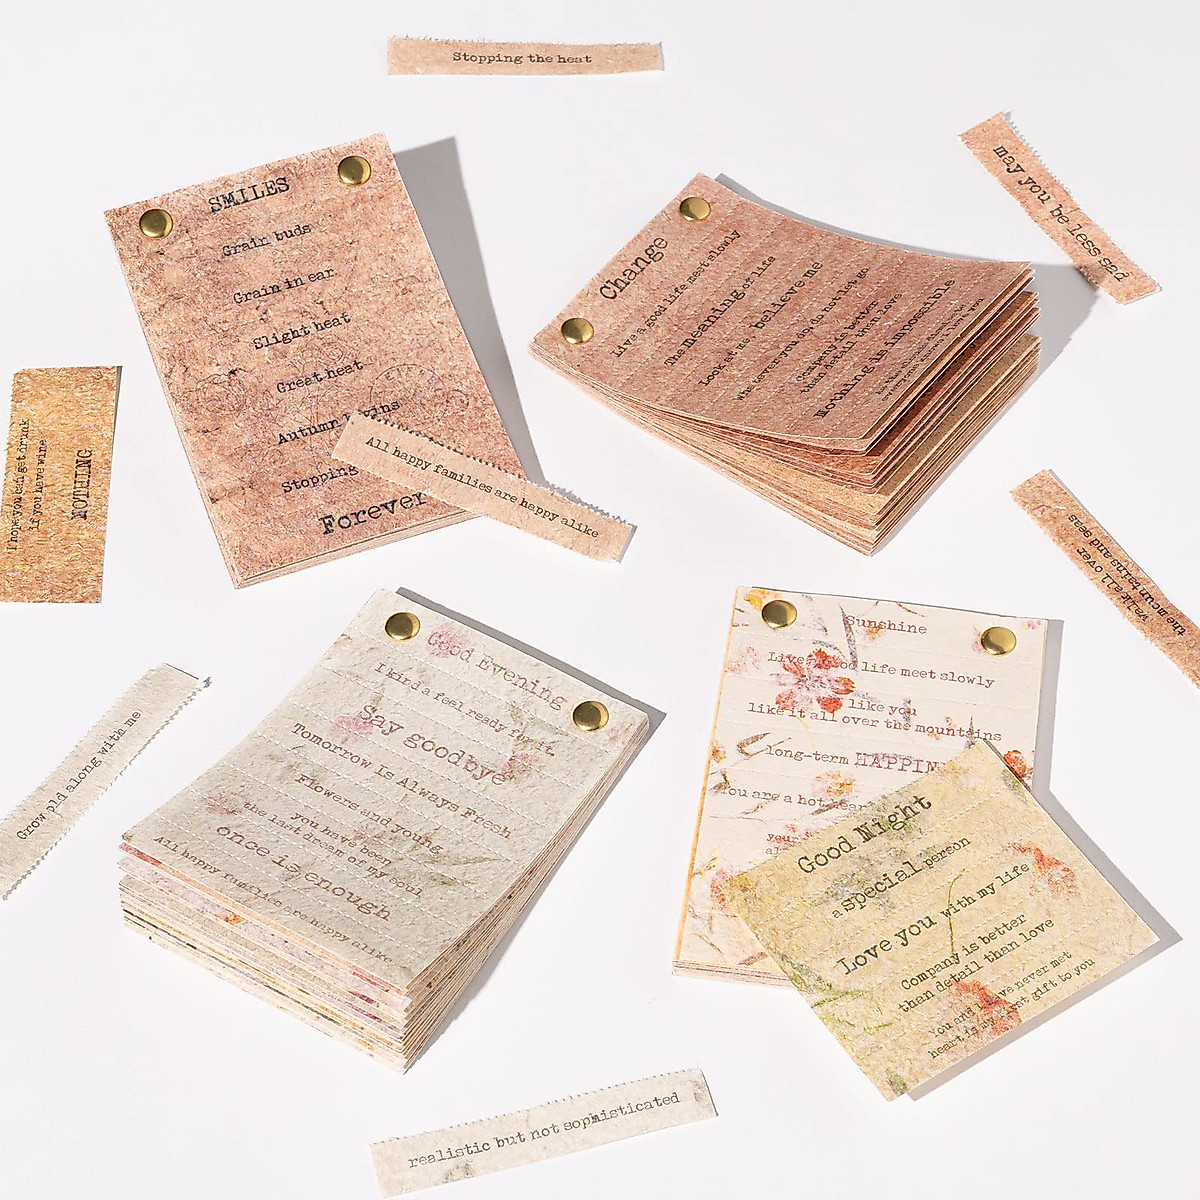 Stopping the heat
may you be less sad
SMILES
Grain buds
Grain in ear
Slight heat
Great heat
Autumn
Stopping
Forever
All happy families are happy alike
Change
Live a good life meet slowly
The meaning of life
Look at me believe me
do not let go
Company is better
than detail than love
Nothing is impossible
I hope you can get drunk
if you have wine
NOTHING
walk all over
the mountains and seas
Grow old along with me
Good Evening
I kind a feel ready for it.
Say goodbye
Tomorrow Is Always Fresh
Flowers and young
you have been
the last dream of my soul
once is enough
All happy families are happy alike
Sunshine
Live a good life meet slowly
like you
like it all over the mountains
long-term HAPPIN
You are a hot hear
your
al
Good Night
a special person
Love you with my life
Company is better
than detail than love
You and I have never met
heart is my first gift to you
realistic but not sophisticated